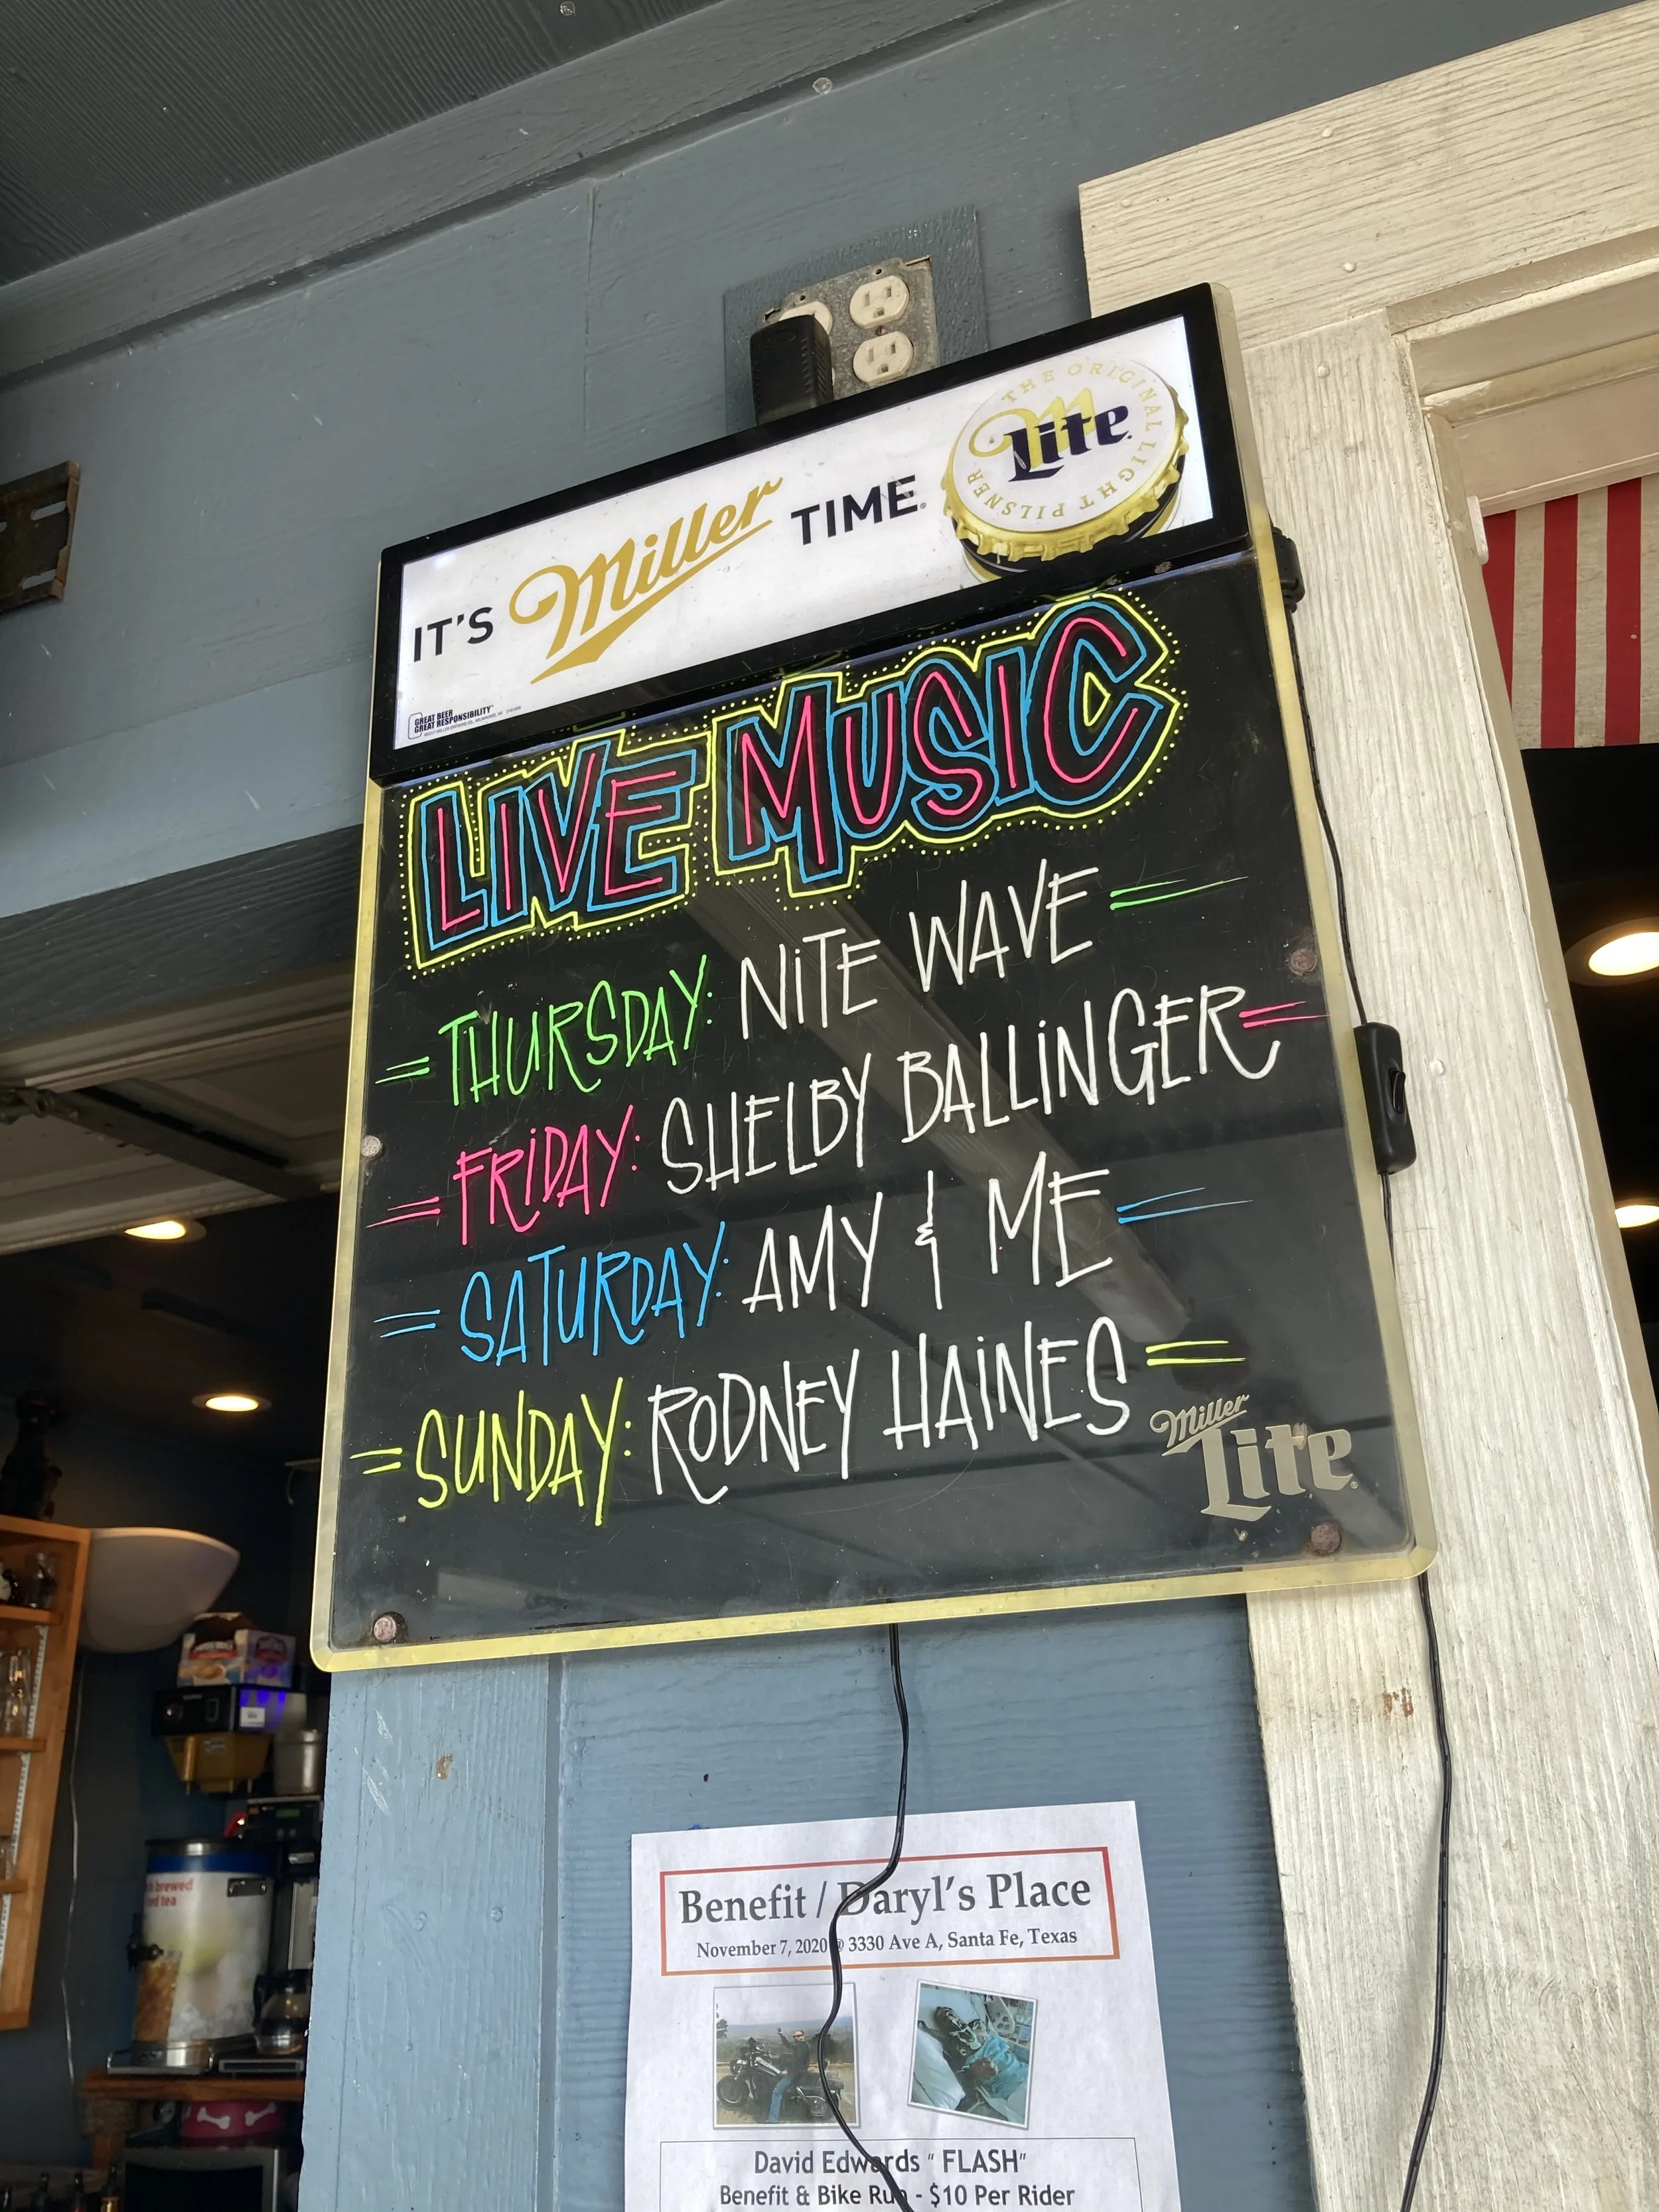 IT'S Miller TIME®
THE ORIGINAL LIGHT PILSNER
Lite
GREAT BEER
GREAT RESPONSIBILITY
LIVE MUSIC
THURSDAY: NITE WAVE
FRIDAY: SHELBY BALLINGER
SATURDAY: AMY & ME
SUNDAY: RODNEY HAINES
Miller
Lite
brewed
tea
Benefit / Daryl's Place
November 7, 2020 @ 3330 Ave A, Santa Fe, Texas
David Edwards " FLASH"
Benefit & Bike Run - $10 Per Rider